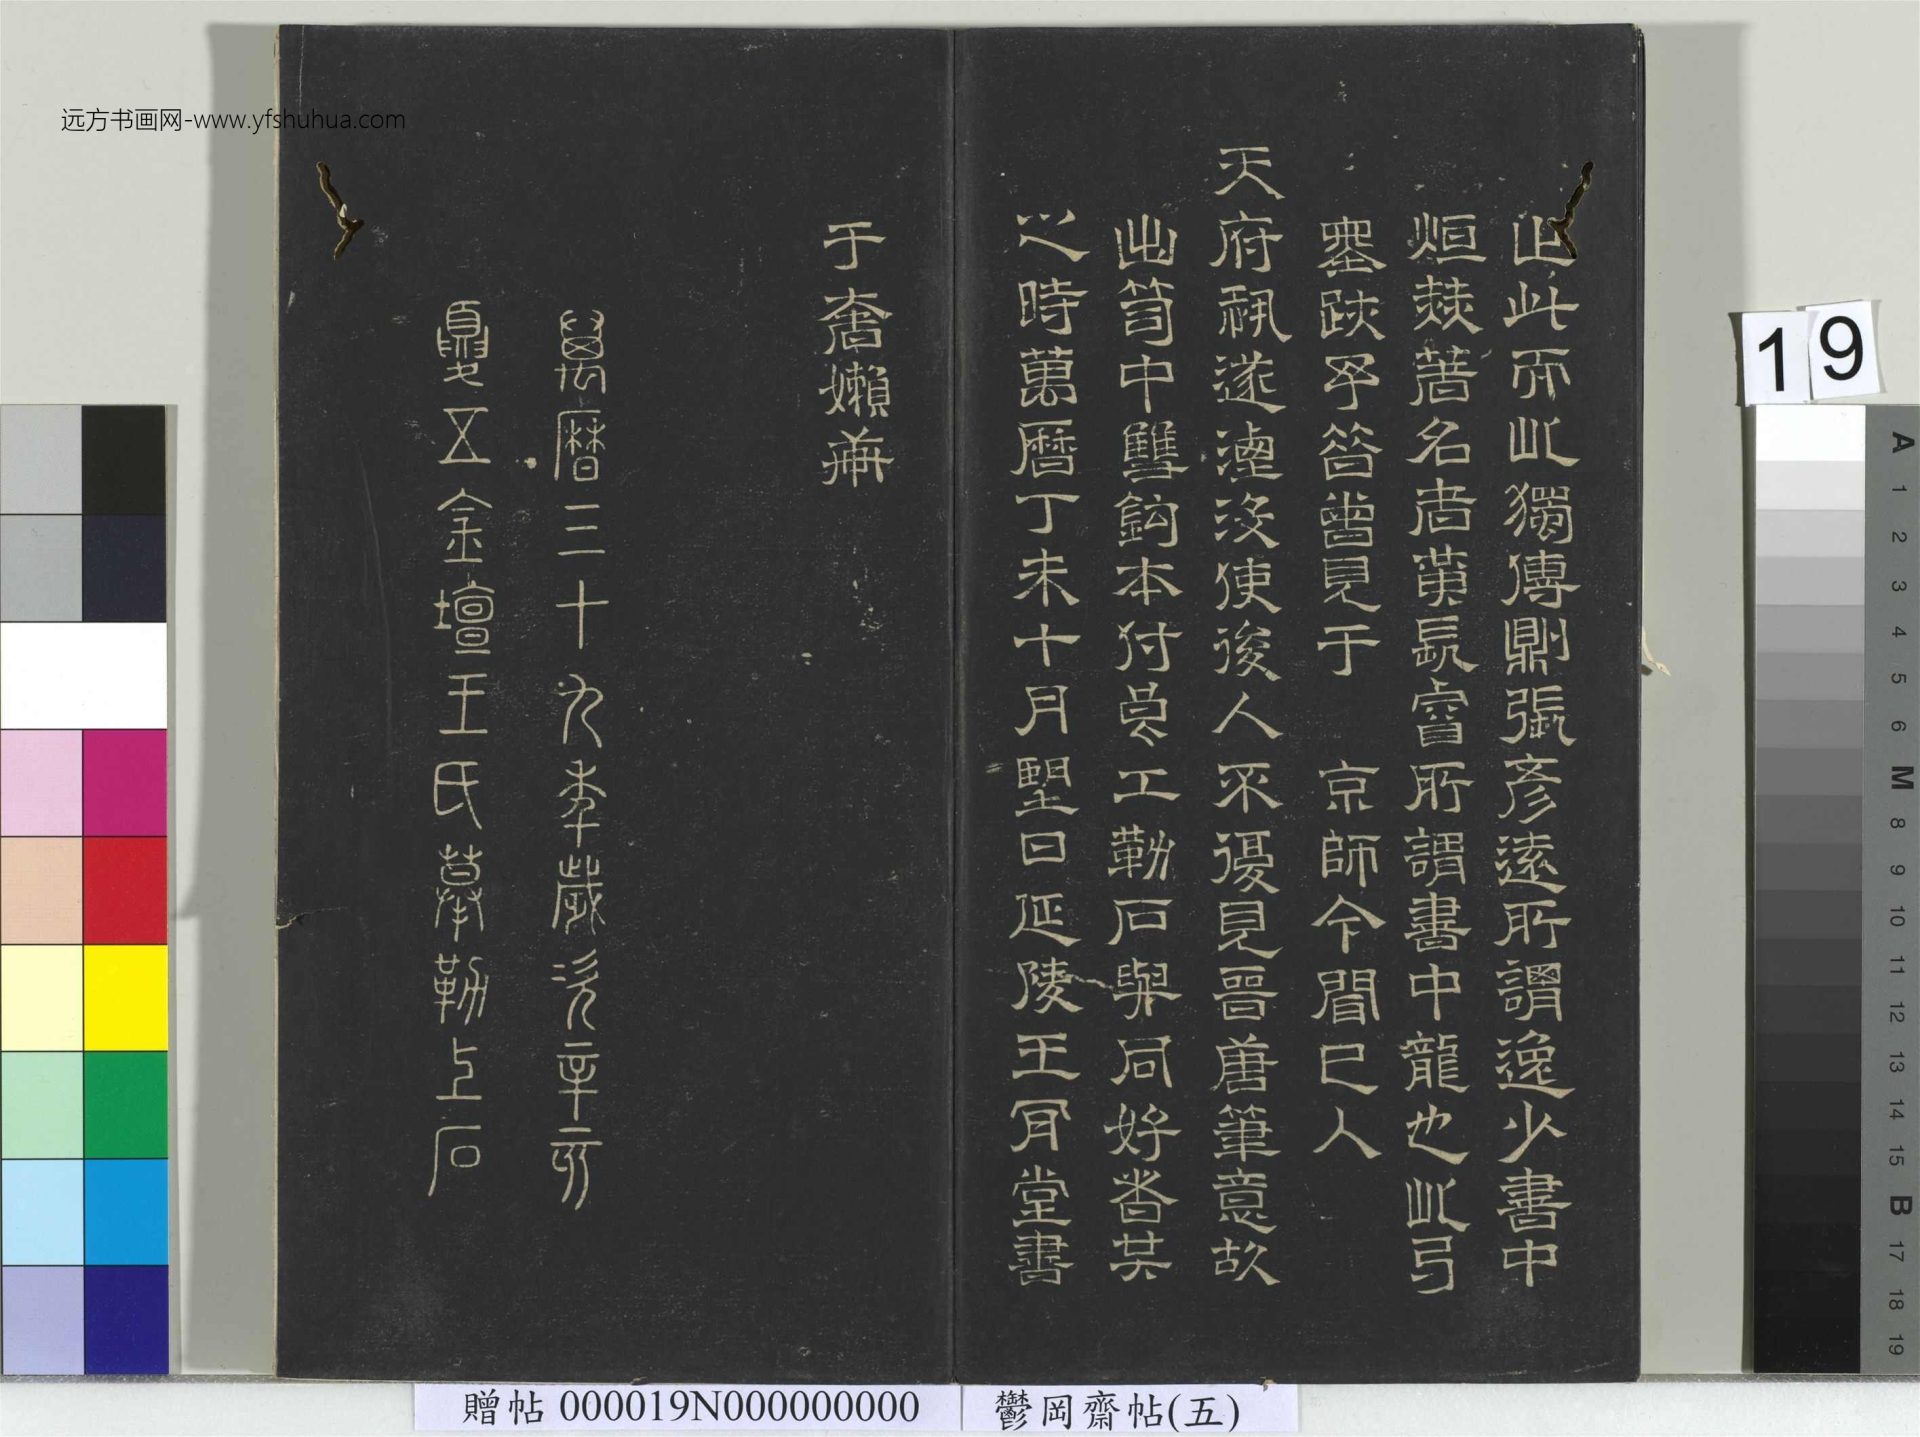 止此而此獨傳鼎張彥遠所謂逸少書中
烜赫著名者黃長睿所謂書中龍也此弓
塞跋予答曾見于 京師今聞已人
天府祕遂湮没使後人不復見晉唐筆意故
出笥中雙鈎本付良工勒石與同好者共
之時萬曆丁未十月朢日延陵王肎堂書
于奢嬾菴
萬曆三十九季歲次辛亥
夏五金壇王氏摹勒上石
远方书画网-www.yfshuhua.com
贈帖 000019N000000000
鬱岡齋帖(五)
19
A 1 2 3 4 5 6 M 8 9 10 11 12 13 14 15 B 17 18 19